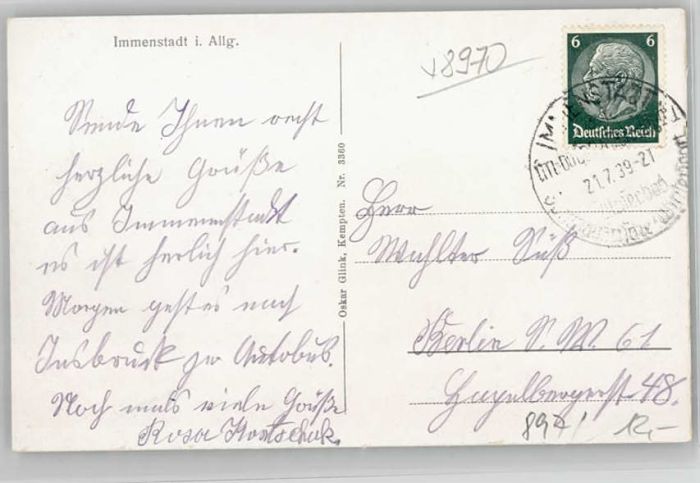 Immenstadt i. Allg.
Sende Ihnen recht
herzliche Grüße
aus Immenstadt
es ist herlich hier.
Morgen gest es nach
Insbruck zu Autobus.
Noch mals viele Grüße
Rosa
Oskar Glink, Kempten. Nr. 3360
8970
6 6
Deutsches Reich
IMMENSTADT
21.7.39-21
Herr
Wahlter Süß
Berlin S.W. 61
Hagelbergerst 48.
897 12,-